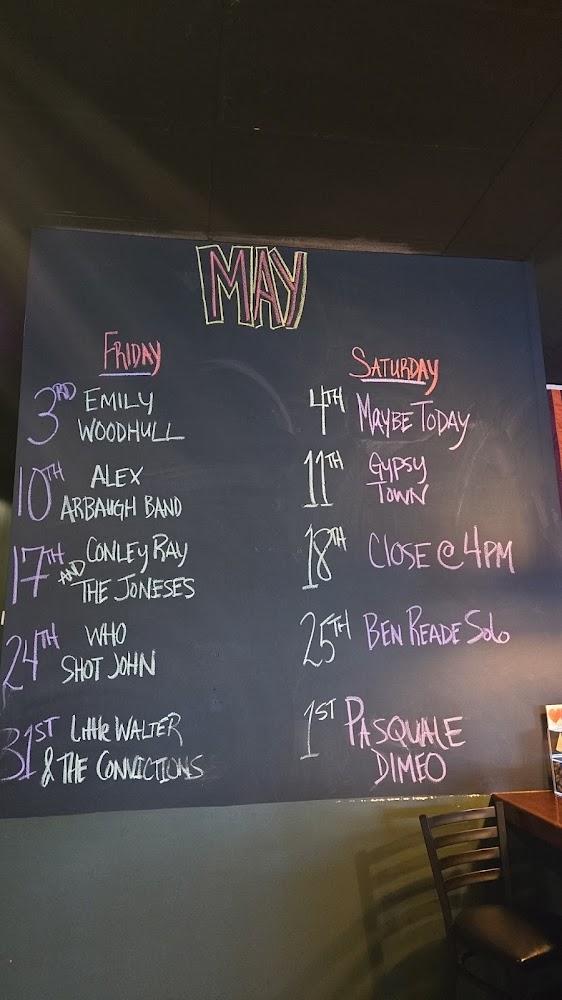 MAY
FRIDAY
3RD EMILY
WOODHULL
10TH ALEX
ARBAUGH BAND
17TH CONLEY RAY
AND THE JONESES
24TH WHO
SHOT JOHN
31ST Little WALTER
& THE CONVICTIONS
SATURDAY
4TH MAYBE TODAY
11TH GYPSY
TOWN
18TH CLOSE @ 4PM
25TH BEN READE Solo
1ST PASQUALE
DIMEO